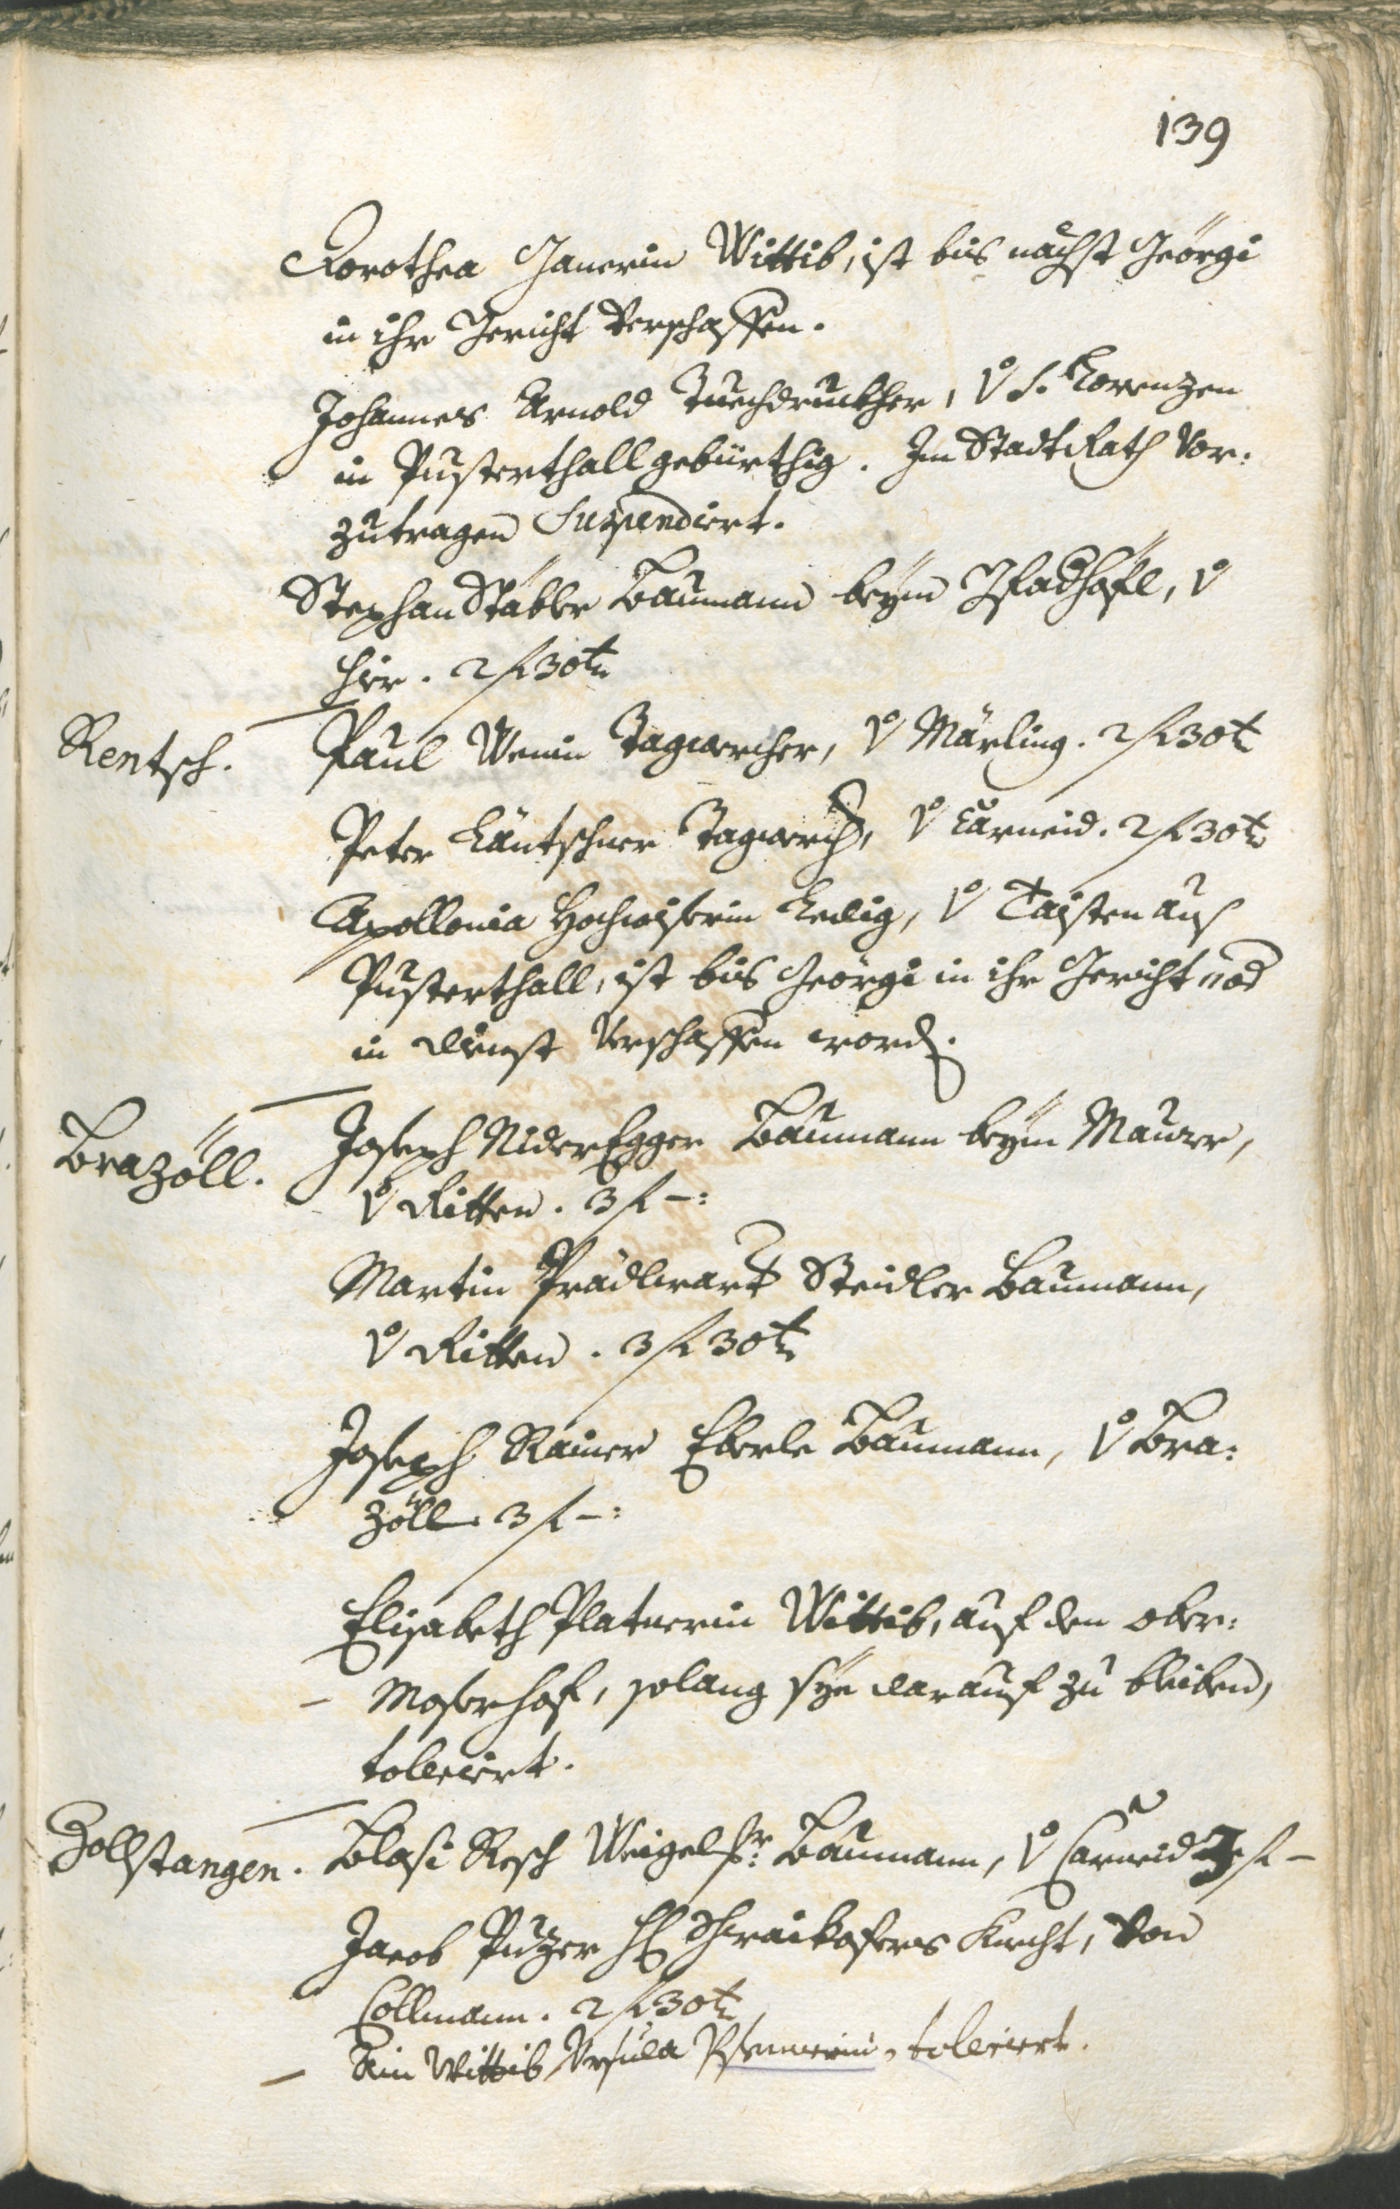 139
Dorothea Janerin Wittib, ist bis nächst Geörgi
in ihr Gericht verschaffen.
Johannes Arnold Tuechdruckher, v. S. Lorenzen
in Pusterthall gebürthig. Im StadtRath vor:
zutragen suspendiert.
Stephan Stäbler Baumann beÿm Pfadhöfl, v.
hier. 2 f 30 k
Rentsch. Paul Wenin Tagwercher, v. Märling. 2 f 30 k
Peter Läntschner Tagwerch, v. Carneid. 2 f 30 k
Apollonia Hochwiserin Ledig, v. Taisten aus
Pusterthall, ist bis Geörgi in ihr Gericht od
in dienst verschaffen word.
Brazöll. Joseph NiderEgger Baumann beÿm Maurer,
v. Ritten. 3 f –:
Martin Prädlwart Steidler Baumann,
v. Ritten. 3 f 30 k
Joseph Rainer Eberle Baumann, v. Bra:
zöll. 3 f –:
Elisabeth Platnerin Wittib, auf den ober:
– Moserhof, solang sÿe darauf zu bleiben,
tolleriert.
Zollstangen. Blasi Resch Baumann, v. Carneid 3 f –
Jacob Puzer Knecht, von
Collmann. 2 f 30 k
– Ain Wittib Ursula tolleriert.